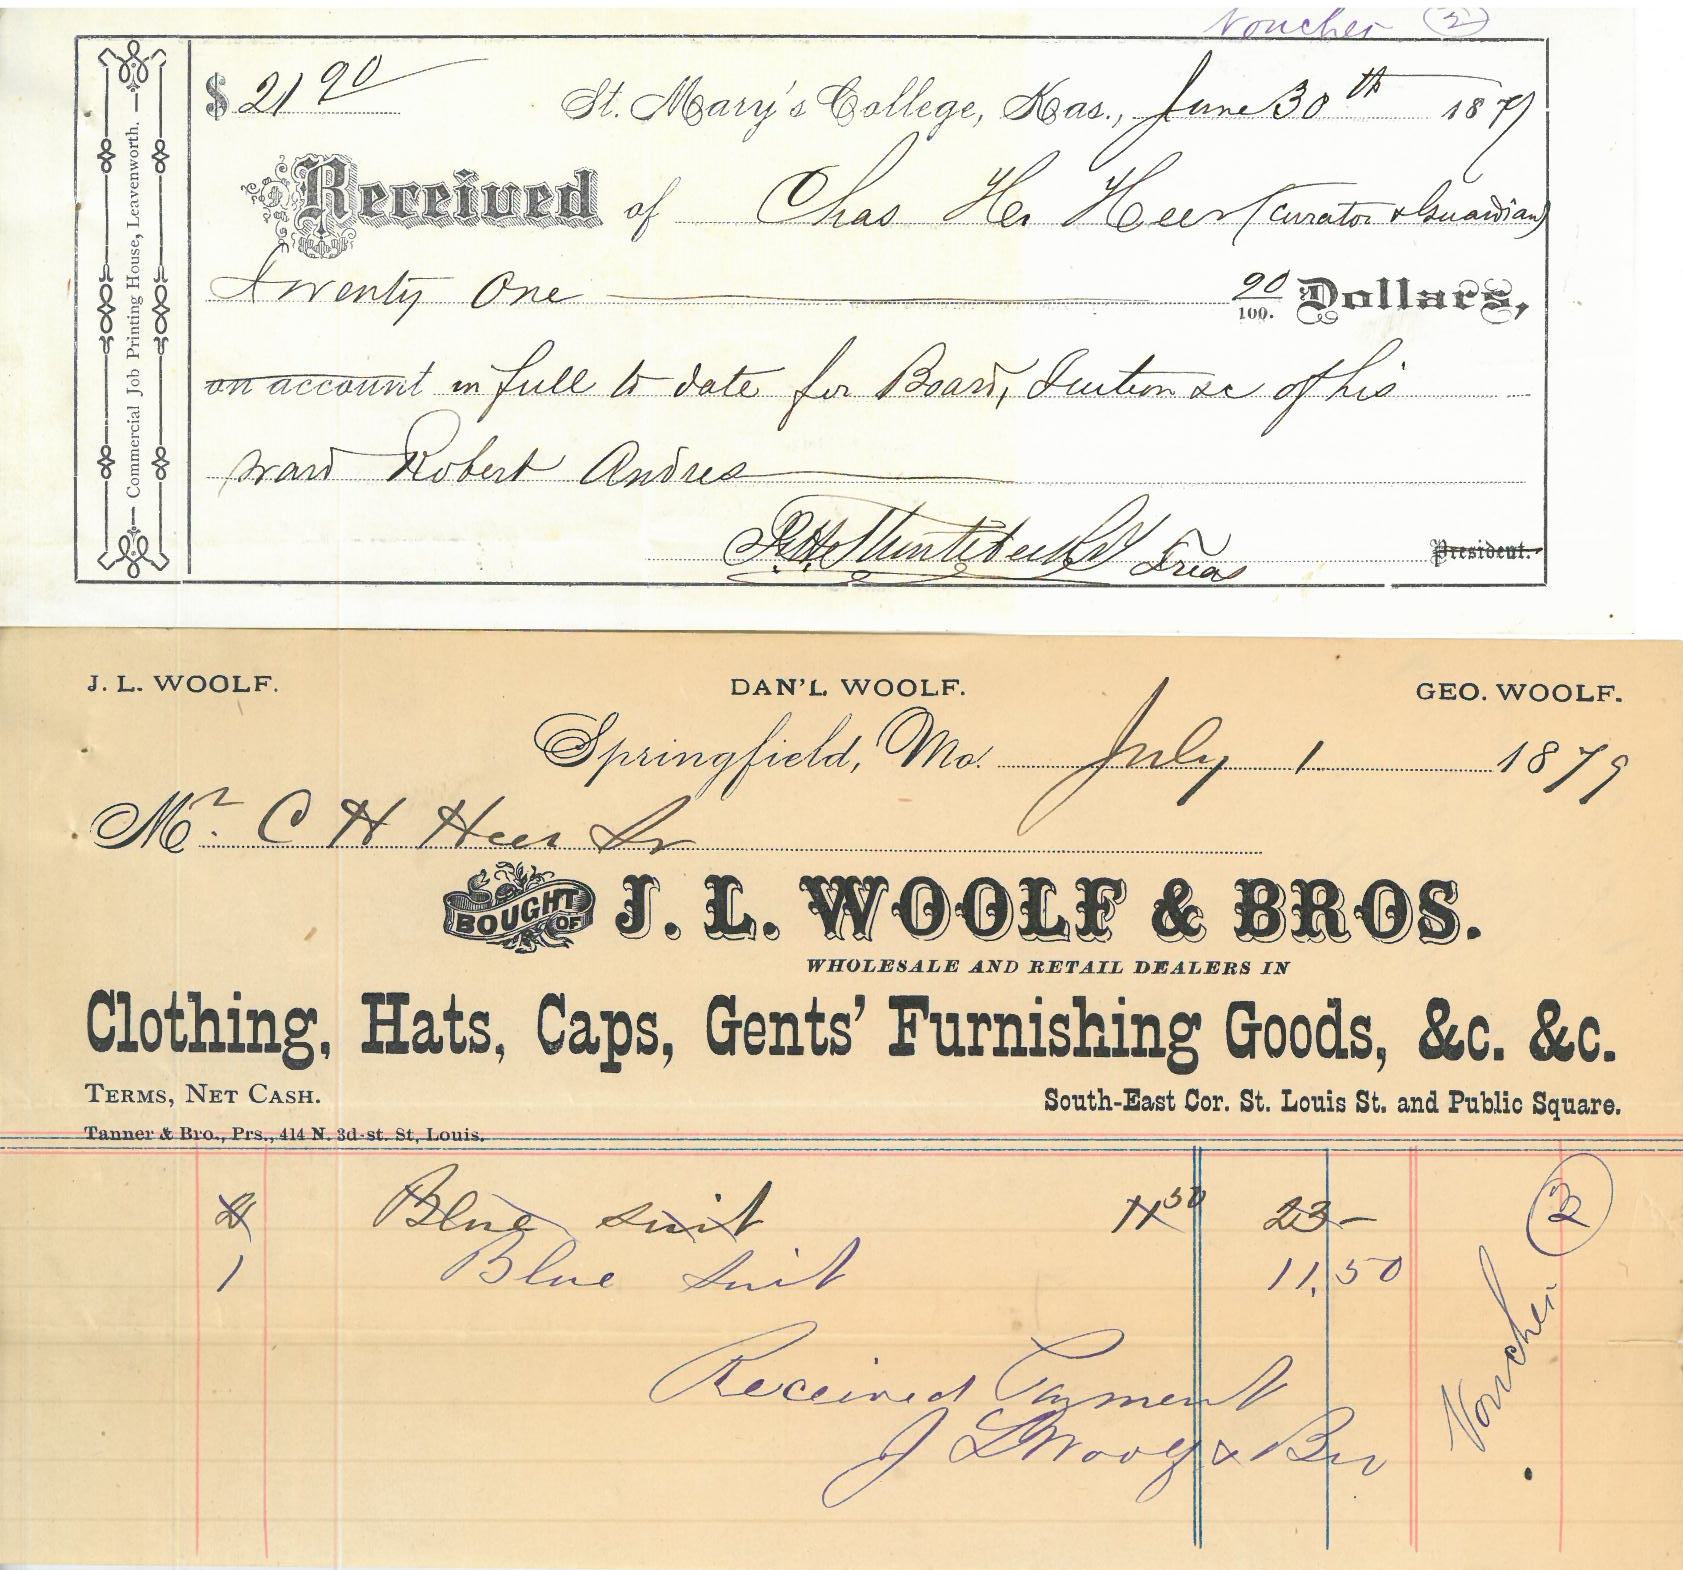 Voucher 2
$ 21 90 St. Mary's College, Kas., June 30th 1879
Received of Chas H. Heer (Curator & Guardian)
Twenty One 90/100. Dollars,
on account in full to date for Board, Tuition &c of his
ward Robert Andres
Treas President.
Commercial Job Printing House, Leavenworth.
J. L. WOOLF. DAN'L WOOLF. GEO. WOOLF.
Springfield, Mo. July 1 1879
Mr. C H Heer Sr
BOUGHT OF J. L. WOOLF & BROS.
WHOLESALE AND RETAIL DEALERS IN
Clothing, Hats, Caps, Gents' Furnishing Goods, &c. &c.
TERMS, NET CASH. South-East Cor. St. Louis St. and Public Square.
Tanner & Bro., Prs., 414 N. 3d-st. St, Louis.
2 Blue suit 11 50 23 –
1 Blue suit 11,50
Received Payment
J L Woolf & Bro
Voucher 2